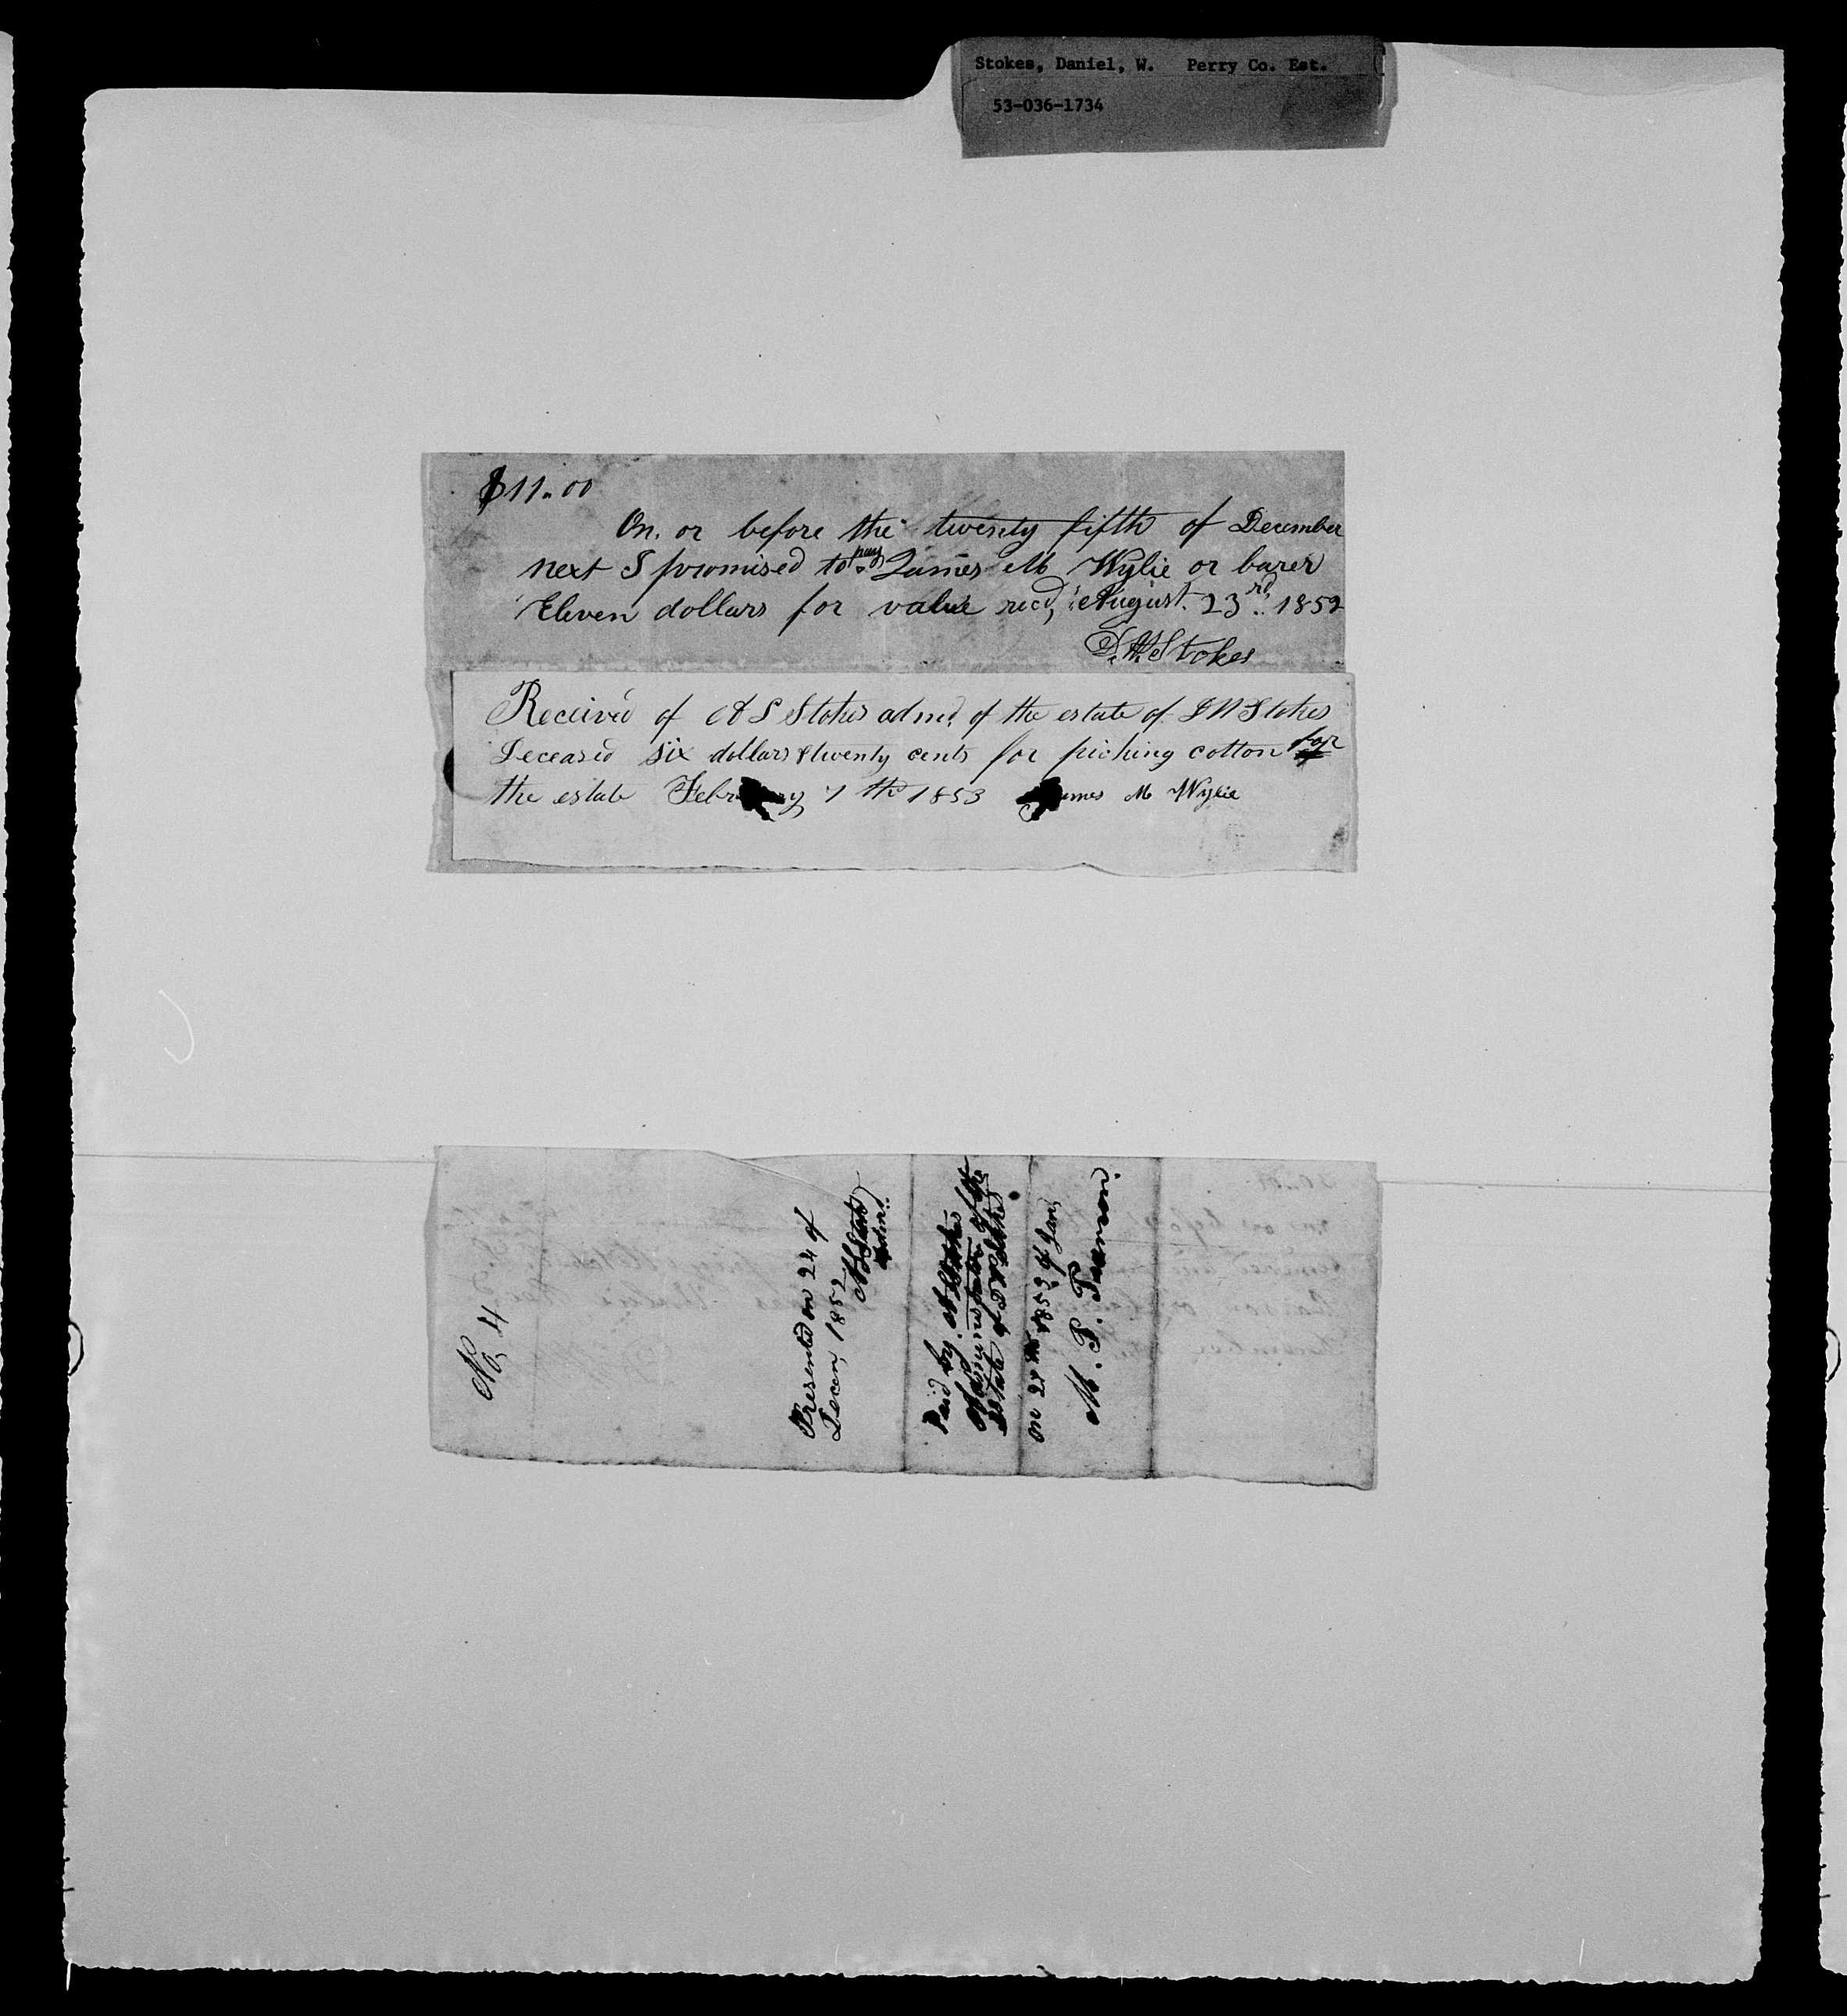 Stokes, Daniel, W. Perry Co. Est.
53-036-1734
$11.00
On. or before the twenty fifth of December
next I promised to pay James M Wylie or barer
Eleven dollars for value recd, August. 23rd, 1852
D. W. Stokes
Received of A S Stokes admr. of the estate of D W Stokes
Deceased six dollars & twenty cents for picking cotton for
the estate February 7th 1853 James M Wylie
No, 4
Presented on 24 of
Decem, 1852
A S Stokes
Admr.
Paid by A S Stokes
Administrator of the
estate of D W Stokes
on 24th 1853 of Jan,
M. P.